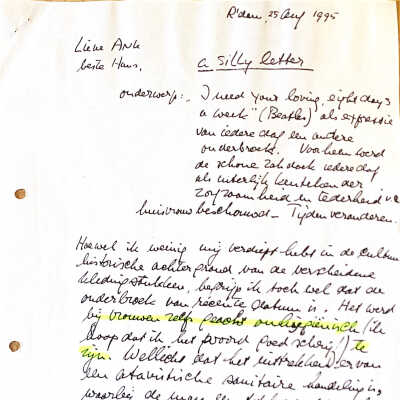 R'dam, 25 Aug 1995
Lieve Ank
beste Hans,
a silly letter
onderwerp: "I need your loving, eight days
a week" (Beatles) als expressie
van iedere dag een andere
onderbroek. Voorheen werd
de schone zakdoek iedere dag
als uiterlijk kenteken der
zorgzaamheid en tederheid v.e
huisvrouw beschouwd - Tijden veranderen.
Hoewel ik weinig mij verdiept heb in de cultuur
historische achtergrond van de verscheidene
kledingstukken, begrijp ik toch wel dat de
onderbroek van recente datum is. Het werd
bij vrouwen zelfs geacht onhygiënisch (ik
hoop dat ik het woord goed schrijf!) te
zijn. Wellicht dat het uittrekken ervan
een atavistische sanitaire handeling is,
waarbij de man een